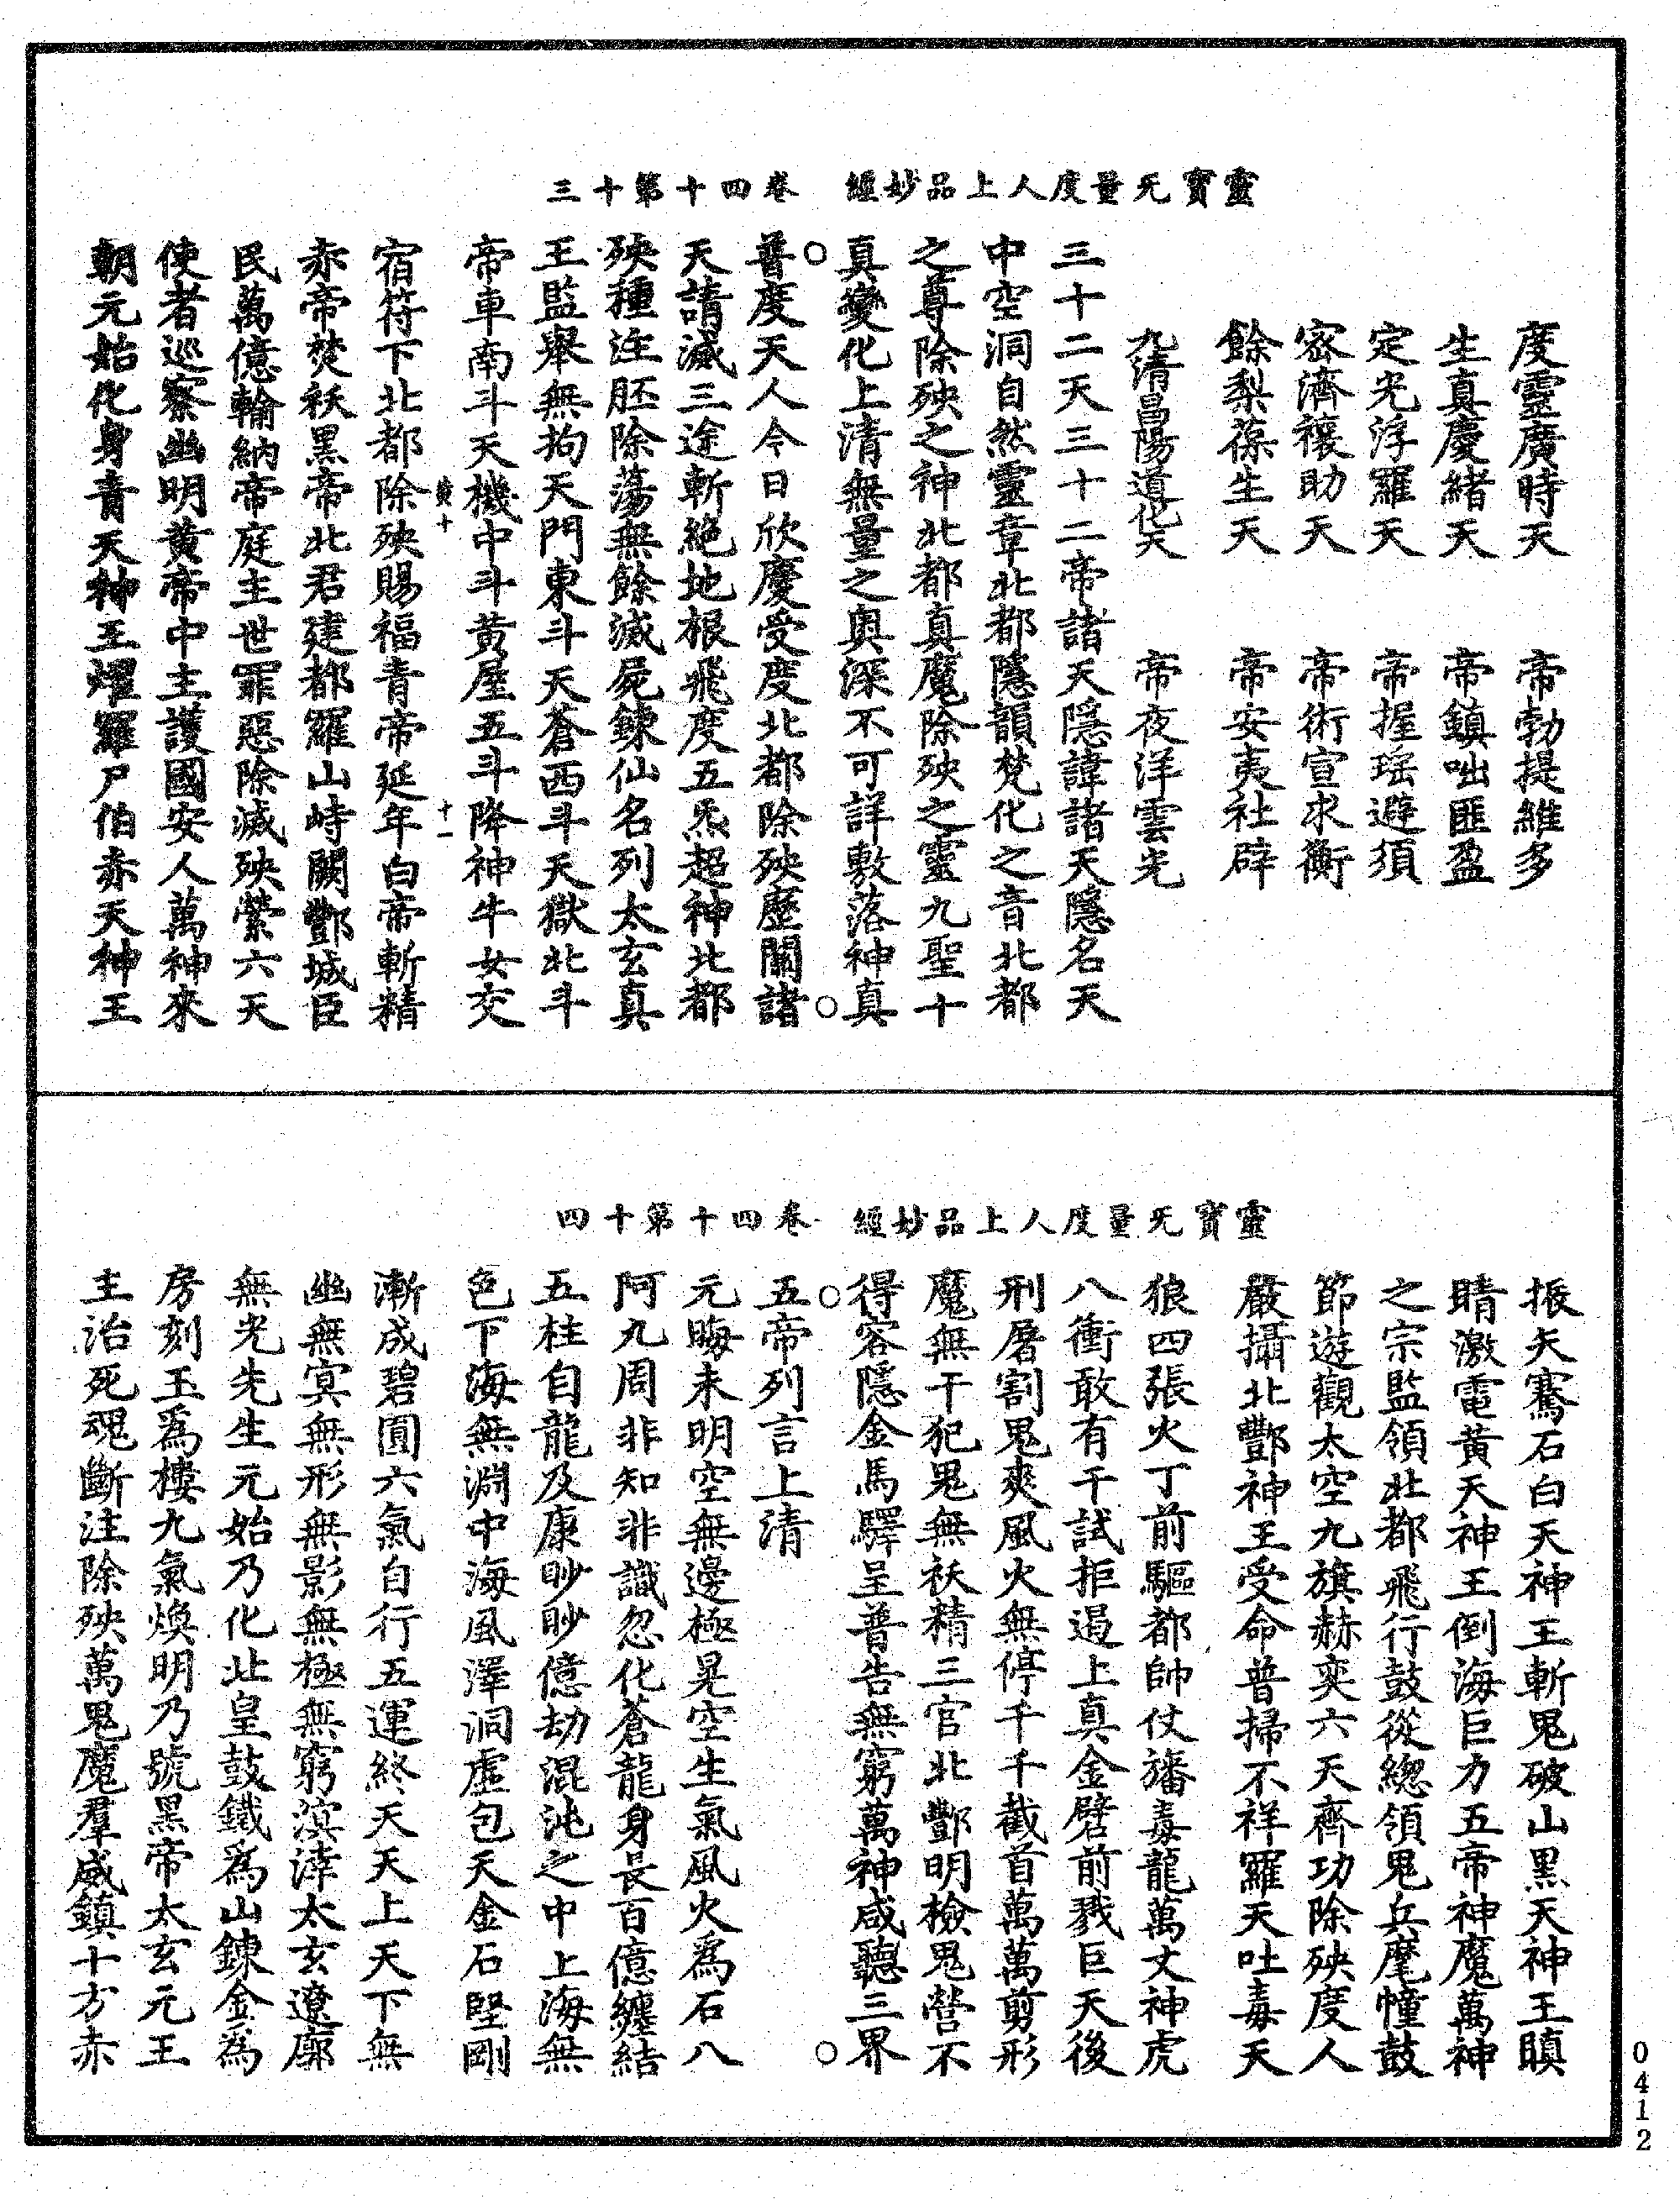 靈寶无量度人上品妙經　卷四十第十三
度靈廣時天　帝勃提維多
生真慶緒天　帝鎮咄匪盈
定光浮羅天　帝握瑶避須
密濟禳助天　帝術宣求衡
餘梨葆生天　帝安夷社辟
九清昌陽道化天　帝夜洋雲光
三十二天三十二帝諸天隱諱諸天隱名天
中空洞自然靈章北都隱韻梵化之音北都
之尊除殃之神北都真魔除殃之靈九聖十
真變化上清無量之奥深不可詳敷落神真
○普度天人今日欣慶受度北都除殃歷關諸○
天請滅三途斬絶地根飛度五炁超神北都
殃種注胚除蕩無餘滅屍鍊仙名列太玄真
王監舉無拘天門東斗天蒼西斗天獄北斗
帝車南斗天機中斗黄屋五斗降神牛女交
十一
宿符下北都除殃賜福青帝延年白帝斬精
赤帝焚祅黑帝北君建都羅山峙闕酆城臣
民萬億輪納帝庭主世罪惡除滅殃縈六天
使者巡察幽明黄帝中主護國安人萬神來
朝元始化身青天神王燿羅尸伯赤天神王
靈寶无量度人上品妙經　卷四十第十四
振矢騫石白天神王斬鬼破山黑天神王瞋
睛激電黄天神王倒海巨力五帝神魔萬神
之宗監領北都飛行鼓從緫領鬼兵麾幢鼓
節遊觀太空九旗赫奕六天齊功除殃度人
嚴攝北酆神王受命普掃不祥羅天吐毒天
狼四張火丁前驅都帥仗旛毒龍萬丈神虎
八衝敢有干試拒遏上真金劈前戮巨天後
刑屠割鬼爽風火無停千千截首萬萬剪形
魔無干犯鬼無祅精三官北酆明檢鬼營不
得容隱金馬驛呈普告無窮萬神咸聽三界
○五帝列言上清○
元晦未明空無邊極晃空生氣風火爲石八
阿九周非知非識忽化蒼龍身長百億纏結
五柱自龍及康眇眇億劫混沌之中上海無
色下海無淵中海風澤洞虛包天金石堅剛
漸成碧圓六氣自行五運終天天上天下無
幽無㝠無形無影無極無窮溟涬太玄遼廓
無光先生元始乃化北皇鼓鐵爲山鍊金爲
房刻玉爲樓九氣煥明乃號黑帝太玄元王
主治死魂斷注除殃萬鬼魔羣威鎮十方赤
0412